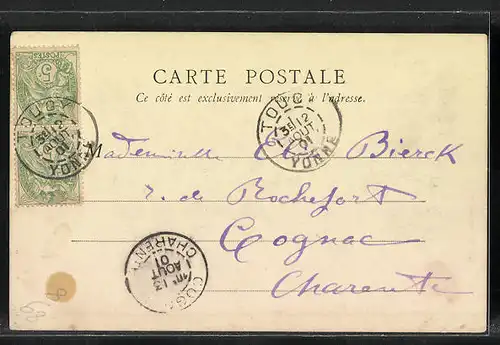 CARTE POSTALE
Ce côté est exclusivement réservé à l'adresse.
5
POSTES
TOUCY
3E / 12
AOUT
01
YONNE
TOUCY
3E / 12
AOUT
01
YONNE
Mademoiselle Bierck
r. de Rochefort
Cognac
Charente
COGN
13
AOUT
01
CHARENTE